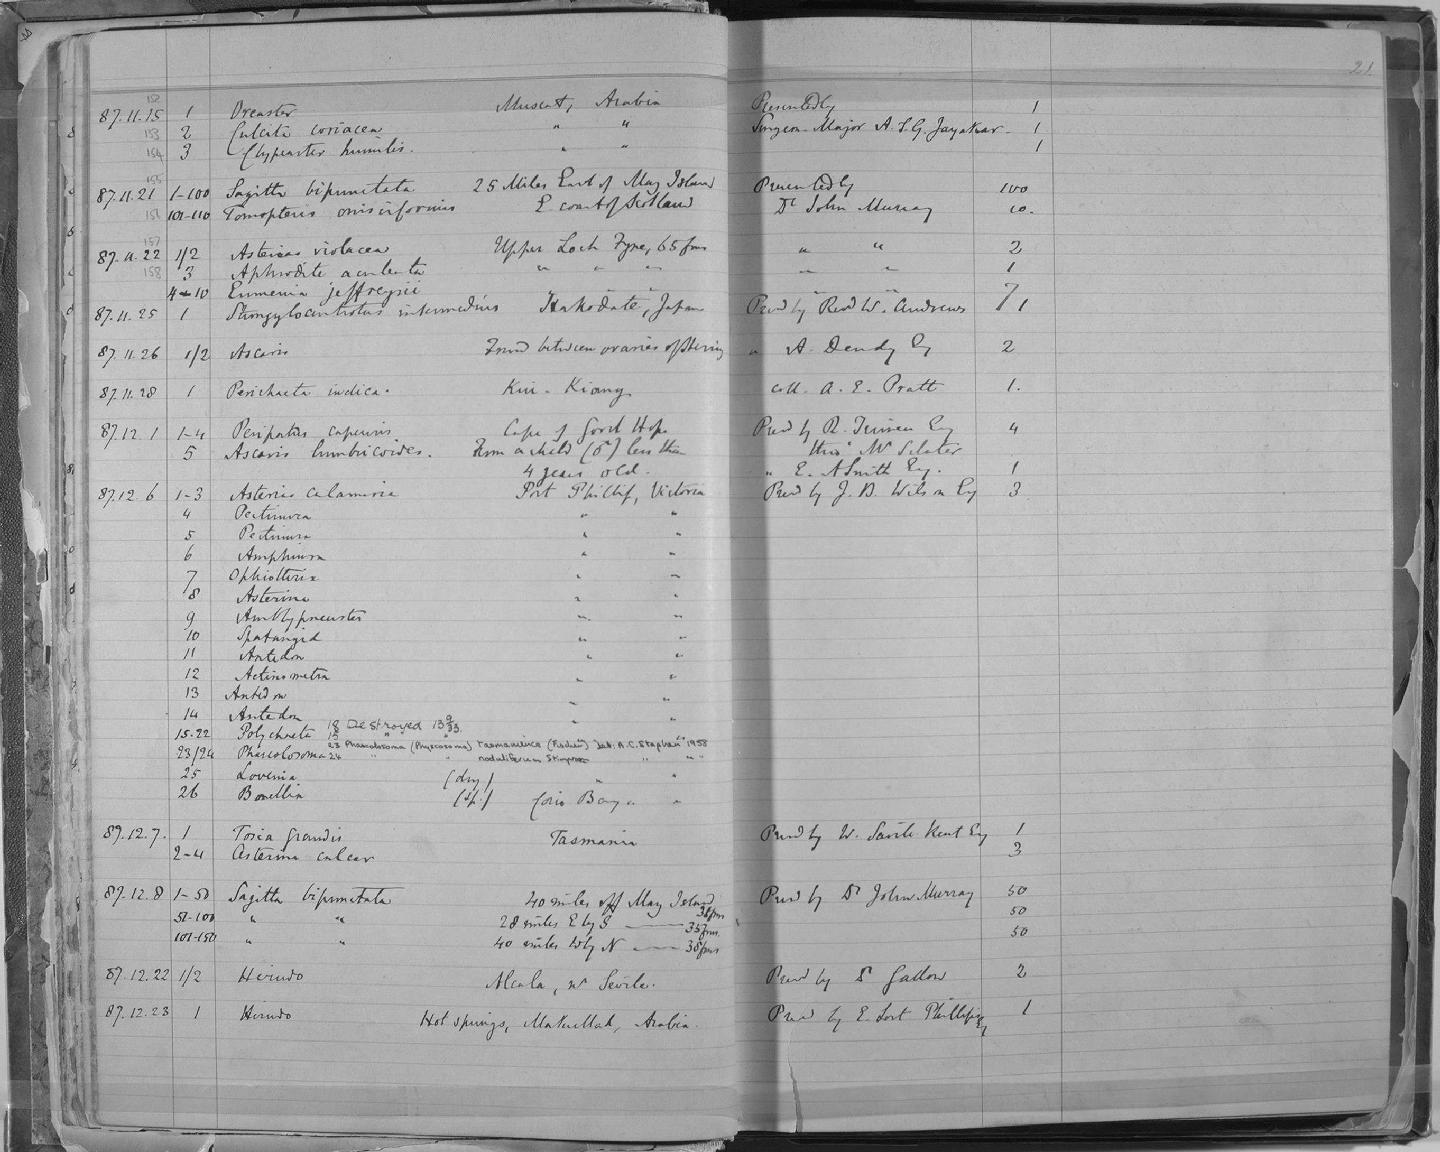 21
152
87.11.15 1 Oreaster Muscat, Arabia Presented by 1
153
2 Culcita coriacea " " Surgeon-Major A.S.G. Jayakar - 1
154
3 Clypeaster humilis. " " 1
155
87.11.21 1-100 Sagitta bipunctata 25 Miles East of May Island Presented by 100
156
101-110 Tomopteris onisciformis E. coast of Scotland Dr John Murray 10.
157
87.11.22 1/2 Asterias violacea Upper Loch Fyne, 65 fms " " 2
158
3 Aphrodite aculeata " " " " " 1
4-10 Eumenia jeffreysii " " " " 7
87.11.25 1 Strongylocentrotus intermedius Hakodate, Japan Presd by Revd W. Andrews 1
87.11.26 1/2 Ascaris Found between ovaries of Herring " A. Dendy Esq 2
87.11.28 1 Perichaeta indica. Kiu-Kiang coll. A.E. Pratt 1.
87.12.1 1-4 Peripatus capensis Cape of Good Hope Presd by R. Trimen Esq 4
5 Ascaris lumbricoides. From a child (♂) less than thro' Mr Sclater
4 years old. " E. A Smith Esq. 1
87.12.6 1-3 Asterias calamaria Port Phillip, Victoria Presd by J.B. Wilson Esq 3
4 Pectinura " "
5 Pectinura " "
6 Amphiura " "
7 Ophiothrix " "
8 Asterina " "
9 Amblypneustes " "
10 Spatangid " "
11 Antedon " "
12 Actinometra " "
13 Antedon " "
14 Antedon " "
15-22 Polychaeta 18 Destroyed 13/9/33.
19 " "
23/24 Phascolosoma 23 Phascolosoma (Physcosoma) tasmaniense (Fischer) Det. A.C. Stephen 1958
24 " " noduliferum Stimpson " " "
25 Lovenia (dry) " "
26 Bonellia (sp.) Corio Bay " "
87.12.7. 1 Tosia grandis Tasmania Presd by W. Savile Kent Esq 1
2-4 Asterina calcar 3
87.12.8 1-50 Sagitta bipunctata 40 miles off May Island 38 fms Presd by Dr John Murray 50
51-100 " " 28 miles E by S —— 35 fms 50
101-150 " " 40 miles W by N —— 38 fms 50
87.12.22 1/2 Hirudo Alcala, nr Seville. Presd by Dr Gadow 2
87.12.23 1 Hirudo Hot springs, Arabia. Presd by E. Lort Phillips Esq 1